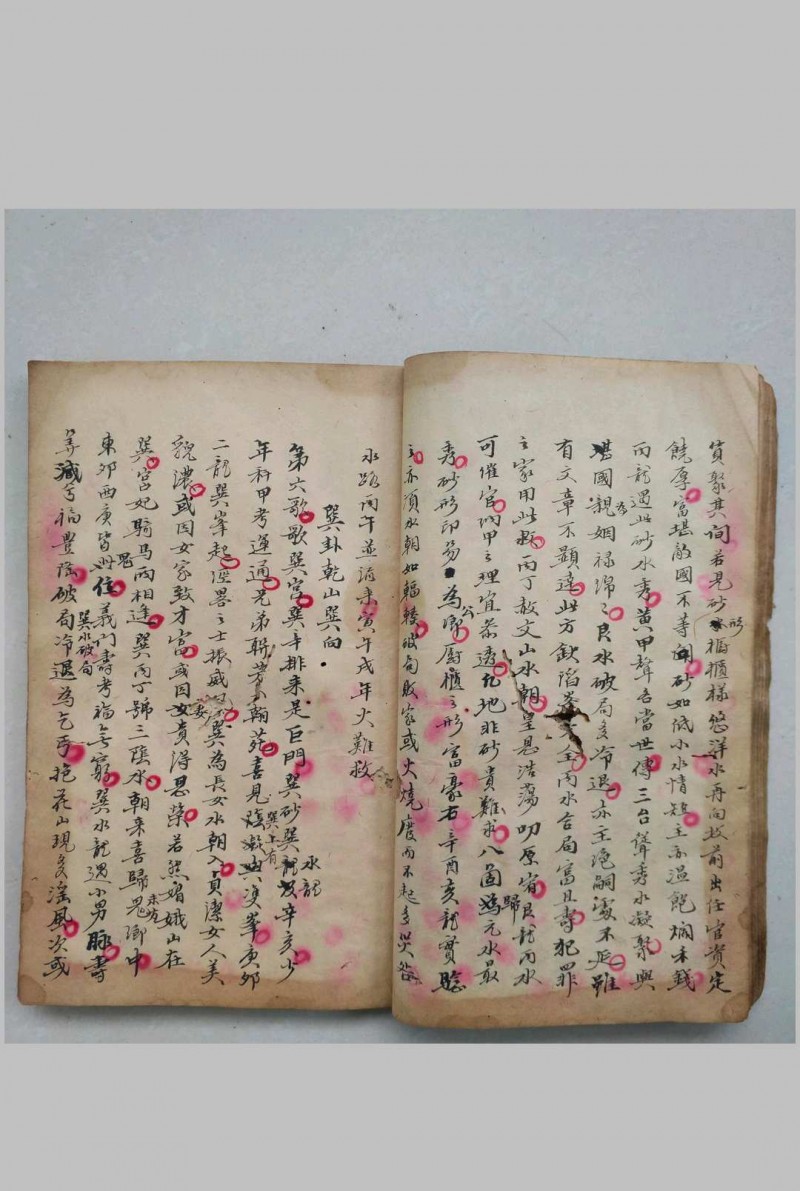 質聚其间若見砂形櫥櫃樣悠洋水再向坟前出任官資定
饒厚富堪敵國不等閑砂如低小水情短主亦温飽爛禾錢
丙龍遇此砂水秀黄甲聲名當世傳三台聳秀水凝聚與
堪國親姻禄綿〻艮水破局多冷退亦主絶嗣壽不延雖
有文章不顯達此方缺陷文全丙水合局富且壽犯罪
主家用此赦丙丁赦文山水朝皇恩浩蕩叨原宥歸艮龍丙水
可催官納甲之理宜参透九地非砂貴難求八國為元水最
秀砂形印笏為公卿厨櫃之形富豪右辛酉亥龍實驗
主亦須水朝如輻輳破局敗家或火燒屢而不起多災咎
水路丙午並流来寅午戌年火難救
巽卦乾山巽向
第六歌歌巽宫巽辛排来是巨門巽砂巽水龍及辛亥少
年科甲考運通兄弟聯芳翰苑喜見陰巽上有雙峯庚夘
二龍巽峯起逕畧之士振威巽為長女水朝入貞潔女人美
貌濃或因女家致才富或因女妻貴得恩榮若然眉娥山在
巽宫妃騎馬两相逢巽丙丁號三陰水朝来喜歸鬼鄉中
東夘西庚皆鬼位義門壽考福無窮巽水龍遇小男脉壽
筭減亏福豊隆巽水破局破局冷退為乞丐抱花山現多滛風次或